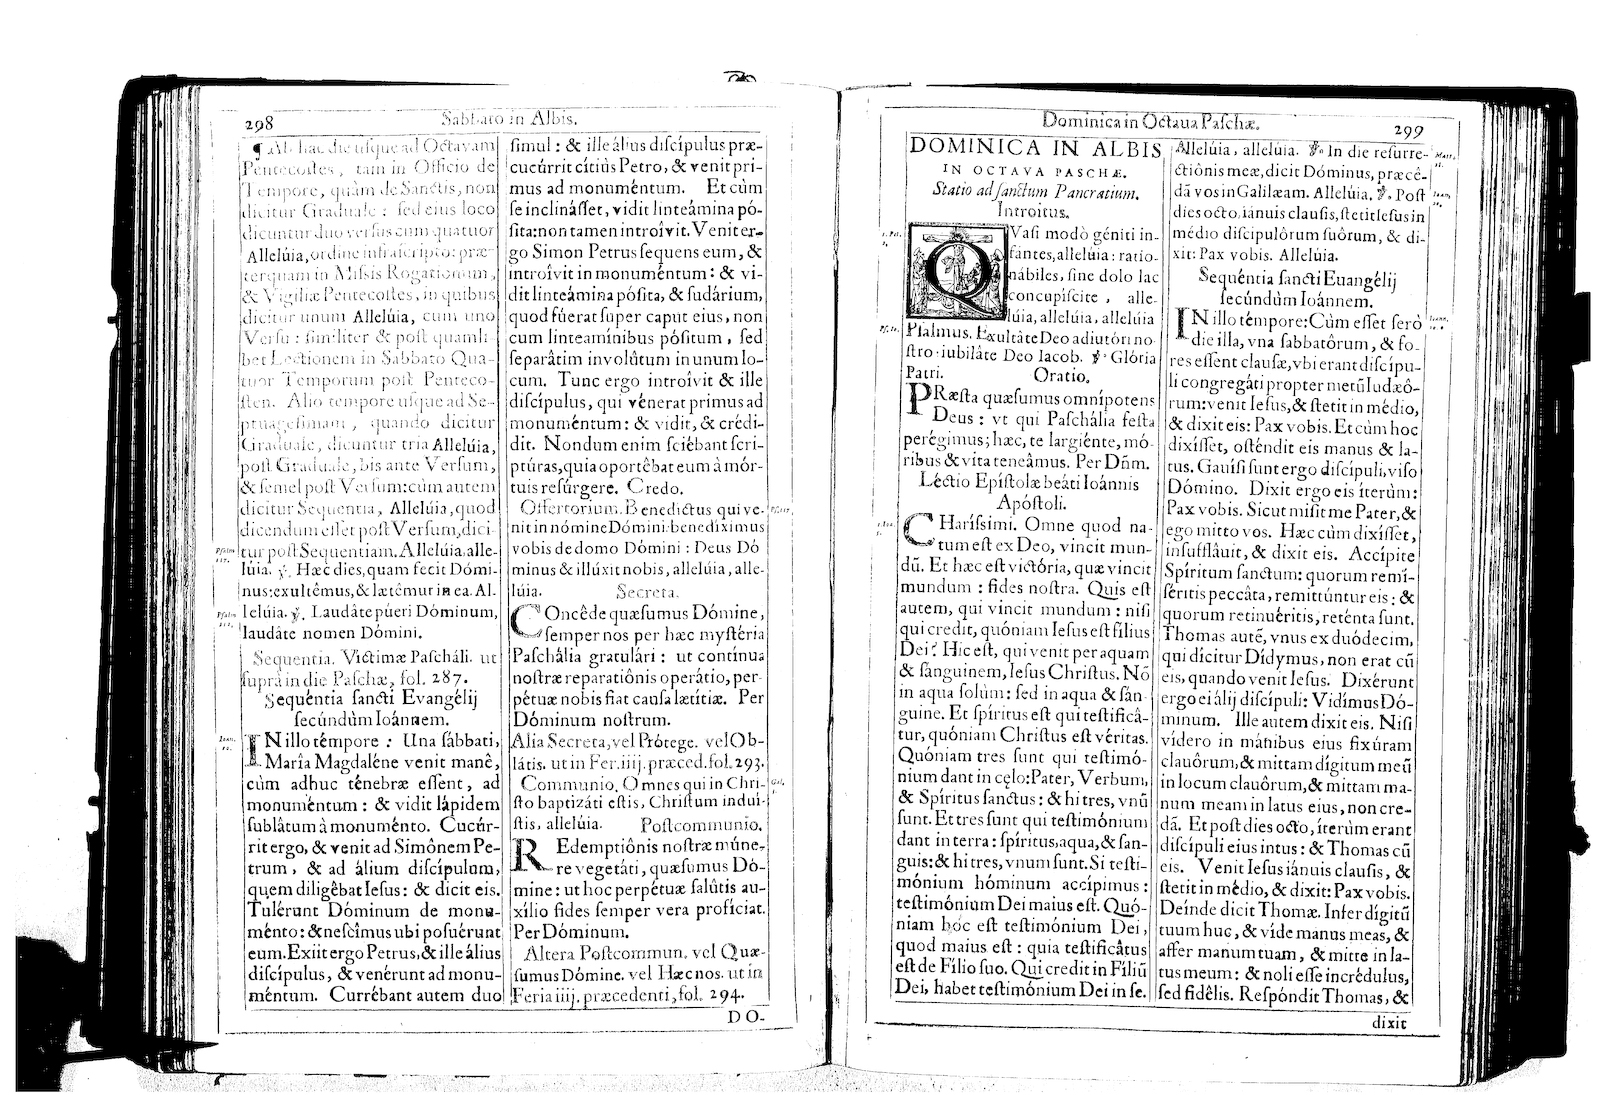 298
Sabbato in Albis.
¶ Ab hac die uſque ad Octavam
Pentecoſtes, tam in Officio de
Tempore, quàm de Sanctis, non
dicitur Graduale: ſed eius loco
dicuntur duo verſus cum quatuor
Allelúia, ordine infraſcripto: præ-
terquam in Miſsis Rogationum,
& Vigiliæ Pentecoſtes, in quibus
dicitur unum Allelúia, cum uno
Verſu: ſimiliter & poſt quamli-
bet Lectionem in Sabbato Qua-
tuor Temporum poſt Penteco-
ſten. Alio tempore uſque ad Se-
ptuageſimam, quando dicitur
Graduale, dicuntur tria Allelúia,
poſt Graduale, bis ante Verſum,
& ſemel poſt Verſum: cùm autem
dicitur Sequentia, Allelúia, quod
dicendum eſſet poſt Verſum, dici-
tur poſt Sequentiam. Allelúia, alle-
lúia. ℣. Hæc dies, quam fecit Dómi-
nus: exultêmus, & lætêmur in ea. Al-
lelúia. ℣. Laudâte púeri Dóminum,
laudâte nomen Dómini.
Sequentia. Victimæ Paſcháli. ut
ſuprà in die Paſchæ, fol. 287.
Sequéntia ſancti Evangélij
ſecúndùm Ioánnem.
IN illo témpore: Una ſábbati,
María Magdaléne venit manè,
cùm adhuc ténebræ eſſent, ad
monuméntum: & vidit lápidem
ſublâtum à monuménto. Cucúr-
rit ergo, & venit ad Simônem Pe-
trum, & ad álium diſcípulum,
quem diligêbat Ieſus: & dicit eis.
Tulérunt Dóminum de monu-
ménto: & neſcímus ubi poſuérunt
eum. Exiit ergo Petrus, & ille álius
diſcípulus, & venérunt ad monu-
méntum. Currébant autem duo
ſimul: & ille álius diſcípulus præ-
cucúrrit cítiùs Petro, & venit pri-
mus ad monuméntum. Et cùm
ſe inclináſſet, vidit linteámina pó-
ſita: non tamen introívit. Venit er-
go Simon Petrus ſequens eum, &
introívit in monuméntum: & vi-
dit linteámina póſita, & ſudárium,
quod fúerat ſuper caput eius, non
cum linteamínibus póſitum, ſed
ſeparâtim involûtum in unum lo-
cum. Tunc ergo introívit & ille
diſcípulus, qui vénerat primus ad
monuméntum: & vidit, & crédi-
dit. Nondum enim ſciébant ſcri-
ptúras, quia oportêbat eum à mór-
tuis reſúrgere. Credo.
Offertorium. Benedíctus qui ve-
nit in nómine Dómini: benedíximus
vobis de domo Dómini: Deus Dó
minus & illúxit nobis, allelúia, alle-
lúia. Secreta.
COncêde quæſumus Dómine,
ſemper nos per hæc myſtéria
Paſchália gratulári: ut contínua
noſtræ reparatiônis operátio, per-
pétuæ nobis fiat cauſa lætítiæ. Per
Dóminum noſtrum.
Alia Secreta, vel Prótege. vel Ob-
látis. ut in Fer. iiij. præced. fol. 293.
Communio. Omnes qui in Chri-
ſto baptizáti eſtis, Chriſtum indui-
ſtis, allelúia. Poſtcommunio.
REdemptiônis noſtræ múne-
re vegetáti, quæſumus Dó-
mine: ut hoc perpétuæ ſalûtis au-
xílio fides ſemper vera profíciat.
Per Dóminum.
Altera Poſtcommun. vel Quæ-
ſumus Dómine. vel Hæc nos. ut in
Feria iiij. præcedenti, fol. 294.
DO-
Dominica in Octaua Paſchæ.
299
DOMINICA IN ALBIS
IN OCTAVA PASCHÆ.
Statio ad ſanctum Pancratium.
Introitus.
QVaſi modò géniti in-
fántes, allelúia: ratio-
nábiles, ſine dolo lac
concupíſcite, alle-
lúia, allelúia, allelúia
Pſalmus. Exultâte Deo adiutóri no-
ſtro: iubilâte Deo Iacob. ℣. Glória
Patri. Oratio.
PRæſta quæſumus omnípotens
Deus: vt qui Paſchália feſta
perégimus; hæc, te largiénte, mó-
ribus & vita teneâmus. Per Dñm.
Léctio Epíſtolæ beáti Ioánnis
Apóſtoli.
CHaríſsimi. Omne quod na-
tum eſt ex Deo, vincit mun-
dū. Et hæc eſt victória, quæ vincit
mundum: fides noſtra. Quis eſt
autem, qui vincit mundum: niſi
qui credit, quóniam Ieſus eſt fílius
Dei? Hic eſt, qui venit per aquam
& ſánguinem, Ieſus Chriſtus. Nō
in aqua ſolùm: ſed in aqua & ſán-
guine. Et ſpíritus eſt qui teſtificâ-
tur, quóniam Chriſtus eſt véritas.
Quóniam tres ſunt qui teſtimó-
nium dant in cęlo: Pater, Verbum,
& Spíritus ſanctus: & hi tres, vnū
ſunt. Et tres ſunt qui teſtimónium
dant in terra: ſpíritus, aqua, & ſan-
guis: & hi tres, vnum ſunt. Si teſti-
mónium hóminum accípimus:
teſtimónium Dei maius eſt. Quó-
niam hoc eſt teſtimónium Dei,
quod maius eſt: quia teſtificâtus
eſt de Fílio ſuo. Qui credit in Fíliū
Dei, habet teſtimónium Dei in ſe.
Allelúia, allelúia. ℣. In die reſurre-
ctiônis meæ, dicit Dóminus, præcê-
dā vos in Galilæam. Allelúia. ℣. Poſt
dies octo, iánuis clauſis, ſtetit Ieſus in
médio diſcipulôrum ſuôrum, & di-
xit: Pax vobis. Allelúia.
Sequéntia ſancti Euangélij
ſecúndùm Ioánnem.
IN illo témpore: Cùm eſſet ſerò
die illa, vna ſabbatôrum, & fo-
res eſſent clauſæ, vbi erant diſcípu-
li congregáti propter metū Iudæô-
rum: venit Ieſus, & ſtetit in médio,
& dixit eis: Pax vobis. Et cùm hoc
dixíſſet, oſténdit eis manus & la-
tus. Gauíſi ſunt ergo diſcípuli, viſo
Dómino. Dixit ergo eis íterùm:
Pax vobis. Sicut miſit me Pater, &
ego mitto vos. Hæc cùm dixíſſet,
inſufflâuit, & dixit eis. Accípite
Spíritum ſanctum: quorum remi-
ſéritis peccâta, remittúntur eis: &
quorum retinuéritis, reténta ſunt.
Thomas autē, vnus ex duódecim,
qui dícitur Dídymus, non erat cū
eis, quando venit Ieſus. Dixérunt
ergo ei álij diſcípuli: Vídimus Dó-
minum. Ille autem dixit eis. Niſi
vídero in mánibus eius fixúram
clauôrum, & mittam dígitum meū
in locum clauôrum, & mittam ma-
num meam in latus eius, non cre-
dā. Et poſt dies octo, íterùm erant
diſcípuli eius intus: & Thomas cū
eis. Venit Ieſus iánuis clauſis, &
ſtetit in médio, & dixit: Pax vobis.
Deínde dicit Thomæ. Infer dígitū
tuum huc, & vide manus meas, &
affer manum tuam, & mitte in la-
tus meum: & noli eſſe incrédulus,
ſed fidêlis. Reſpóndit Thomas, &
dixit